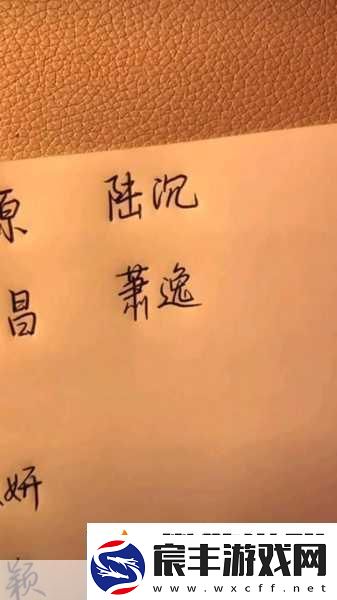 原 陆沉
昌 萧逸
妍
颖
宸丰游戏网
www.wxcff.net